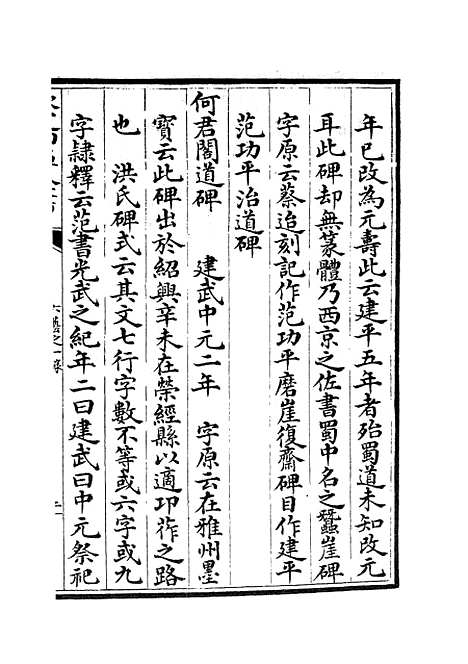 年已改為元壽此云建平五年者殆蜀道未知改元
耳此碑却無篆體乃西京之佐書蜀中名之蠶崖碑
字原云蔡迨刻記作范功平磨崖復齋碑目作建平
范功平治道碑
何君閣道碑　建武中元二年　字原云在雅州墨
寶云此碑出於紹興辛未在榮經縣以適邛莋之路
也　洪氏碑式云其文七行字數不等或六字或九
字隸釋云范書光武之紀年二曰建武曰中元祭祀
六藝之一錄